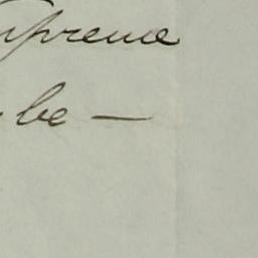 Supreme
be —